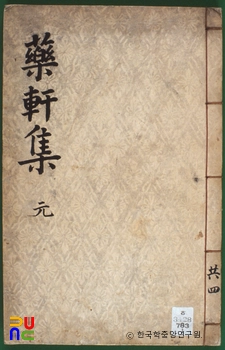 藥軒集
元
共四
ⓒ 한국학중앙연구원